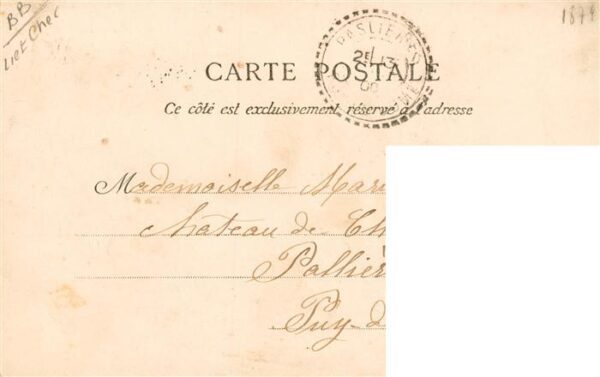 BB
Loir et Cher
1874
PASLIÈRES
25
13
06
CARTE POSTALE
Ce côté est exclusivement réservé à l'adresse
Mademoiselle Mari
château de Ch
Pallièr
Puy-d